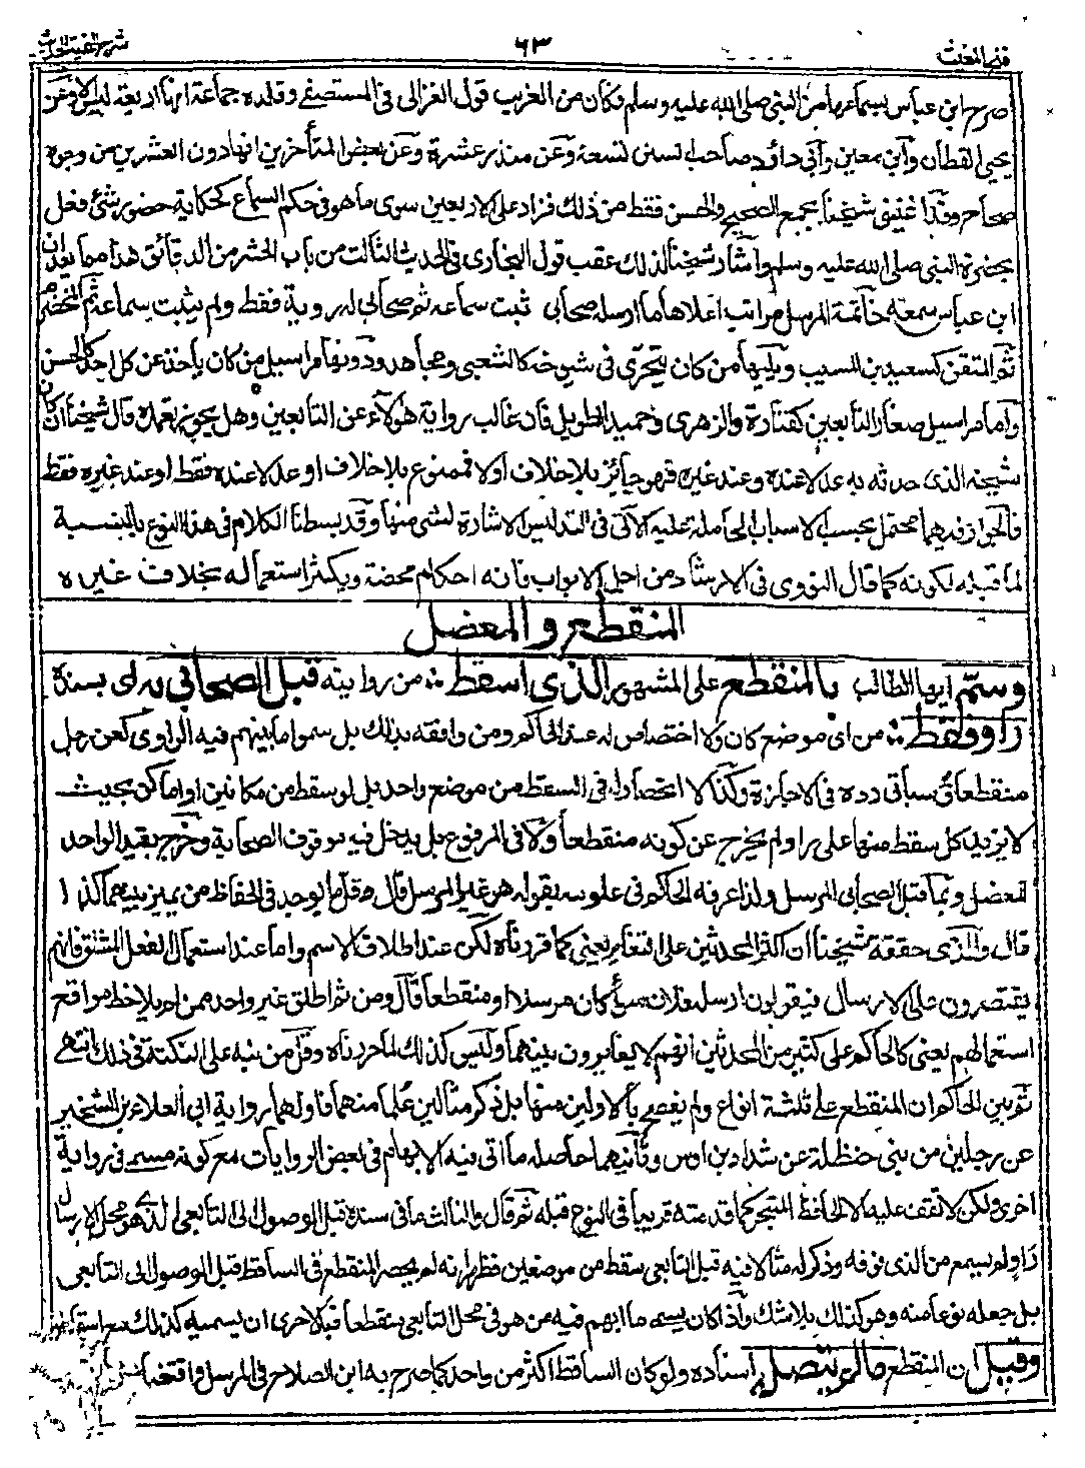 فتح المغيث ٦٣ شرح الفية الحديث
صرح ابن عباس بسماعها من النبي صلى الله عليه وسلم فكان من الغريب قول الغزالي في المستصفى وقلده جماعة انها اربعة ليس الا وعن
يحيى القطان وابن معين وابي داؤد صاحب السنن تسعة وعن منذر عشرة وعن بعض المتأخرين انها دون العشرين من وجوه
صحاح وقد اعتنى شيخنا بجمع الصحيح والحسن فقط من ذلك فزاد على الاربعين سوى ما هو في حكم السماع كحكاية حضور شئ فعل
بحضرة النبي صلى الله عليه وسلم واشار شيخنا لذلك عقب قول البخاري في الحديث الثالث من باب الحشر من الدقائق هذا مما يعد ان
ابن عباس سمعه خاتمة المرسل مراتب اعلاها ما ارسله صحابي ثبت سماعه ثم صحابي له روية فقط ولم يثبت سماعه ثم المخضرم
ثم المتقن كسعيد بن المسيب ويليها من كان يتحرى في شيوخه كالشعبي ومجاهد ودونها مراسيل من كان يأخذ عن كل احد كالحسن
واما مراسيل صغار التابعين كقتادة والزهري وحميد الطويل فان غالب رواية هؤلاء عن التابعين وهل يجوز تعمده قال شيخنا ان كان
شيخه الذي حدثه به عدلا عنده وعند غيره فهو جائز بلا خلاف اولا فممنوع بلا خلاف او عدلا عنده فقط او عند غيره فقط
فالجواز فيهما محتمل بحسب الاسباب الحاملة عليه الآتي في التدليس الاشارة لشئ منها وقد بسطنا الكلام في هذا النوع بالنسبة
لما قبله لكونه كما قال النووي في الارشاد من اجل الابواب فانه احكام محضة ويكثر استعماله بخلاف غيره
المنقطع والمعضل
وسمّ ايها الطالب بالمنقطع على المشهور الذي اسقط من رواته قبل الصحابي به اي بسنده
راو فقط من اي موضع كان ولا اختصاص له عند الحاكم ومن وافقه بذلك بل سموا ما يبهم فيه الراوي كعن رجل
منقطعا وسيأتي رده في الاجازة وكذا لا انحصار له في السقط من موضع واحد بل لو سقط من مكانين او اماكن بحيث
لا يزيد كل سقط منها على راو لم يخرج عن كونه منقطعا ولا في المرفوع بل يدخل فيه موقوف الصحابة وخرج بقيد الواحد
المعضل وبما قبل الصحابي المرسل ولذا عرفه الحاكم في علومه بقوله هو غير المرسل قال وقل ما يوجد في الحفاظ من يميز بينهما كذا
قال والذي حققه شيخنا ان اكثر المحدثين على التغاير يعني كما قررناه لكن عند اطلاق الاسم واما عند استعمال الفعل المشتق فانهم
يقتصرون على الارسال فيقولون ارسله فلان سواء كان مرسلا او منقطعا قال ومن ثم اطلق غير واحد ممن لم يلاحظ مواقع
استعمالهم يعني كالحاكم على كثير من المحدثين انهم لا يغايرون بينهما وليس كذلك لما حررناه وقل من نبه على النكتة في ذلك انتهى
ثم بين الحاكم ان المنقطع على ثلثة انواع ولم يفصح بالاولين منها بل ذكر مثالين علما منهما فاولهما رواية ابي العلاء بن الشخير
عن رجلين من بني حنظلة عن شداد بن اوس وثانيهما حاصله ما اتى فيه الابهام في بعض الروايات مع كونه مسمى في رواية
اخرى ولكن لا يقف عليه الا الحافظ المتبحر كما قدمته قريبا في النوع قبله ثم قال والثالث ما في سنده قبل الوصول الى التابعي الذي هو محل الارسال
راو لم يسمع من الذي فوقه وذكر له مثالا فيه قبل التابعي سقط من موضعين فظهر انه لم يحصر المنقطع في الساقط قبل الوصول الى التابعي
بل جعله نوعا منه وهو كذلك بلا شك واذا كان يسمي ما ابهم فيه من هو في محل التابعي منقطعا فبالاحرى ان يسميه كذلك مع اسقاطه
وقيل ان المنقطع ما لم يتصل اسناده ولو كان الساقط اكثر من واحد كما صرح به ابن الصلاح في المرسل واقتضاه